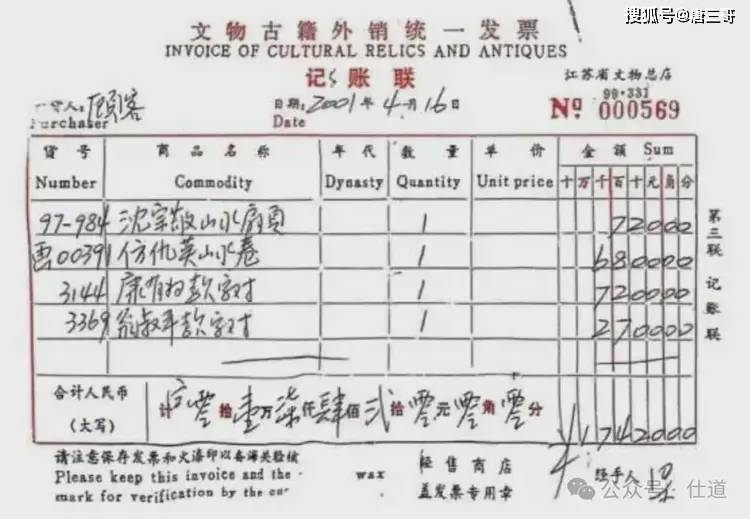 搜狐号@唐三哥
文物古籍外销统一发票
INVOICE OF CULTURAL RELICS AND ANTIQUES
记账联
江苏省文物总店
99·331
购货人: 顾客
日期: 2001年4月16日
№ 000569
Purchaser
Date
货号 商品名称 年代 数量 单价 金额 Sum
Number Commodity Dynasty Quantity Unit price 十万千百十元角分
97-984 沈宗敬山水扇页 1 72000
00391 仿仇英山水卷 1 680000
3144 康有为款字对 1 720000
3369 翁叔平款字对 1 270000
合计人民币
(大写)
计 零拾壹万柒仟肆佰贰拾零元零角零分 ¥1742000
第三联 记账联
请注意保存发票和火漆印以备海关验核
Please keep this invoice and the wax
mark for verification by the cu
经售商店
盖发票专用章
经手人 梁
公众号·仕道